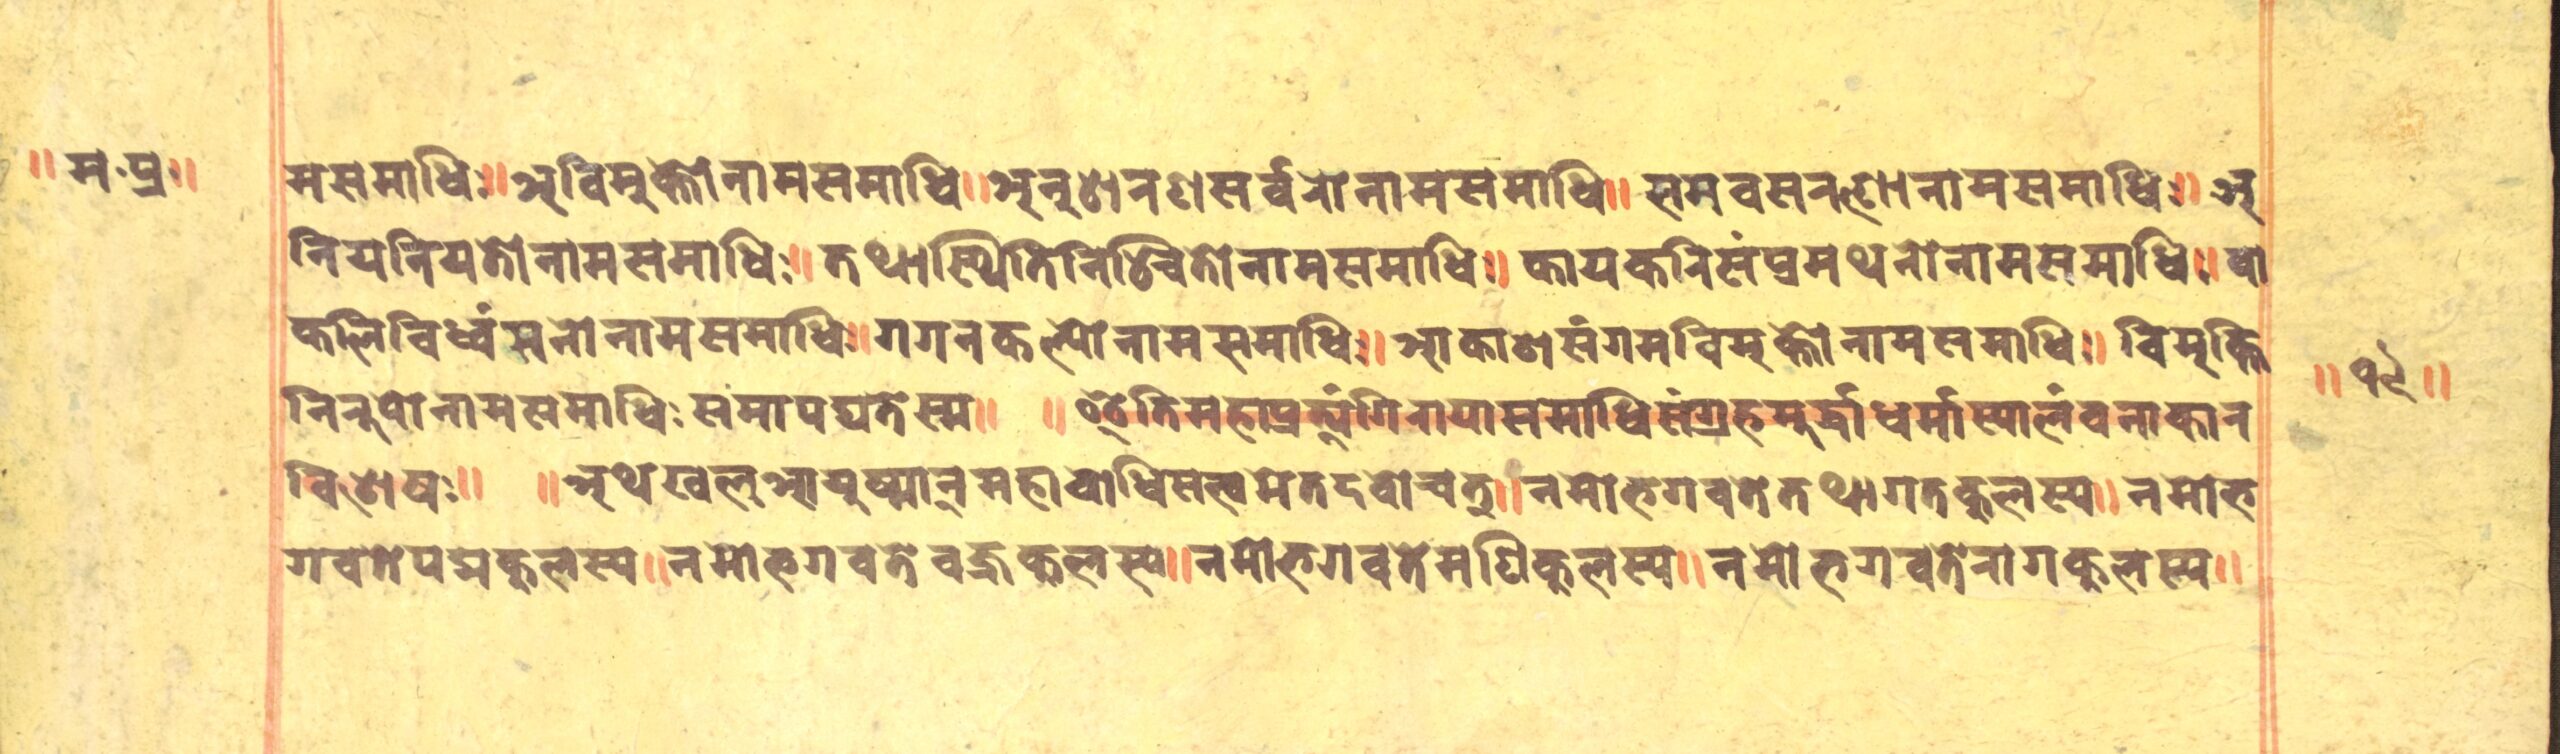 ॥ म॰प्र॰ ॥
मसमाधिः॥ अविमुक्तोनामसमाधि॥ अनुशेनशसर्वरोनामसमाधि॥ समवसनणोनामसमाधिः॥ अ
नियनियतोनामसमाधिः॥ तथास्थितिनिश्चितोनामसमाधिः॥ कायकनिसंप्रमथनोनामसमाधिः॥ वा
कलिविध्वंसनोनामसमाधिः॥ गगनकल्पोनामसमाधिः॥ आकाशसंगमविमुक्तोनामसमाधिः॥ विमुक्ति
निनुपोनामसमाधिः समापद्यतेस्म॥ ॥ इतिमहाप्रत्यंगिनायासमाधिसंग्रहमुर्द्धाधर्मास्यालंवनाकान
विशेषः॥ ॥ अथखलुआयुष्मान्महावोधिसत्वमेतदवोचत्॥ नमोभगवतेतथागतकुलस्य॥ नमोभ
गवतेपद्मकुलस्य॥ नमोभगवतेवज्रकुलस्य॥ नमोभगवतेमणिकुलस्य॥ नमोभगवतेनागकुलस्य॥
॥ १९ ॥